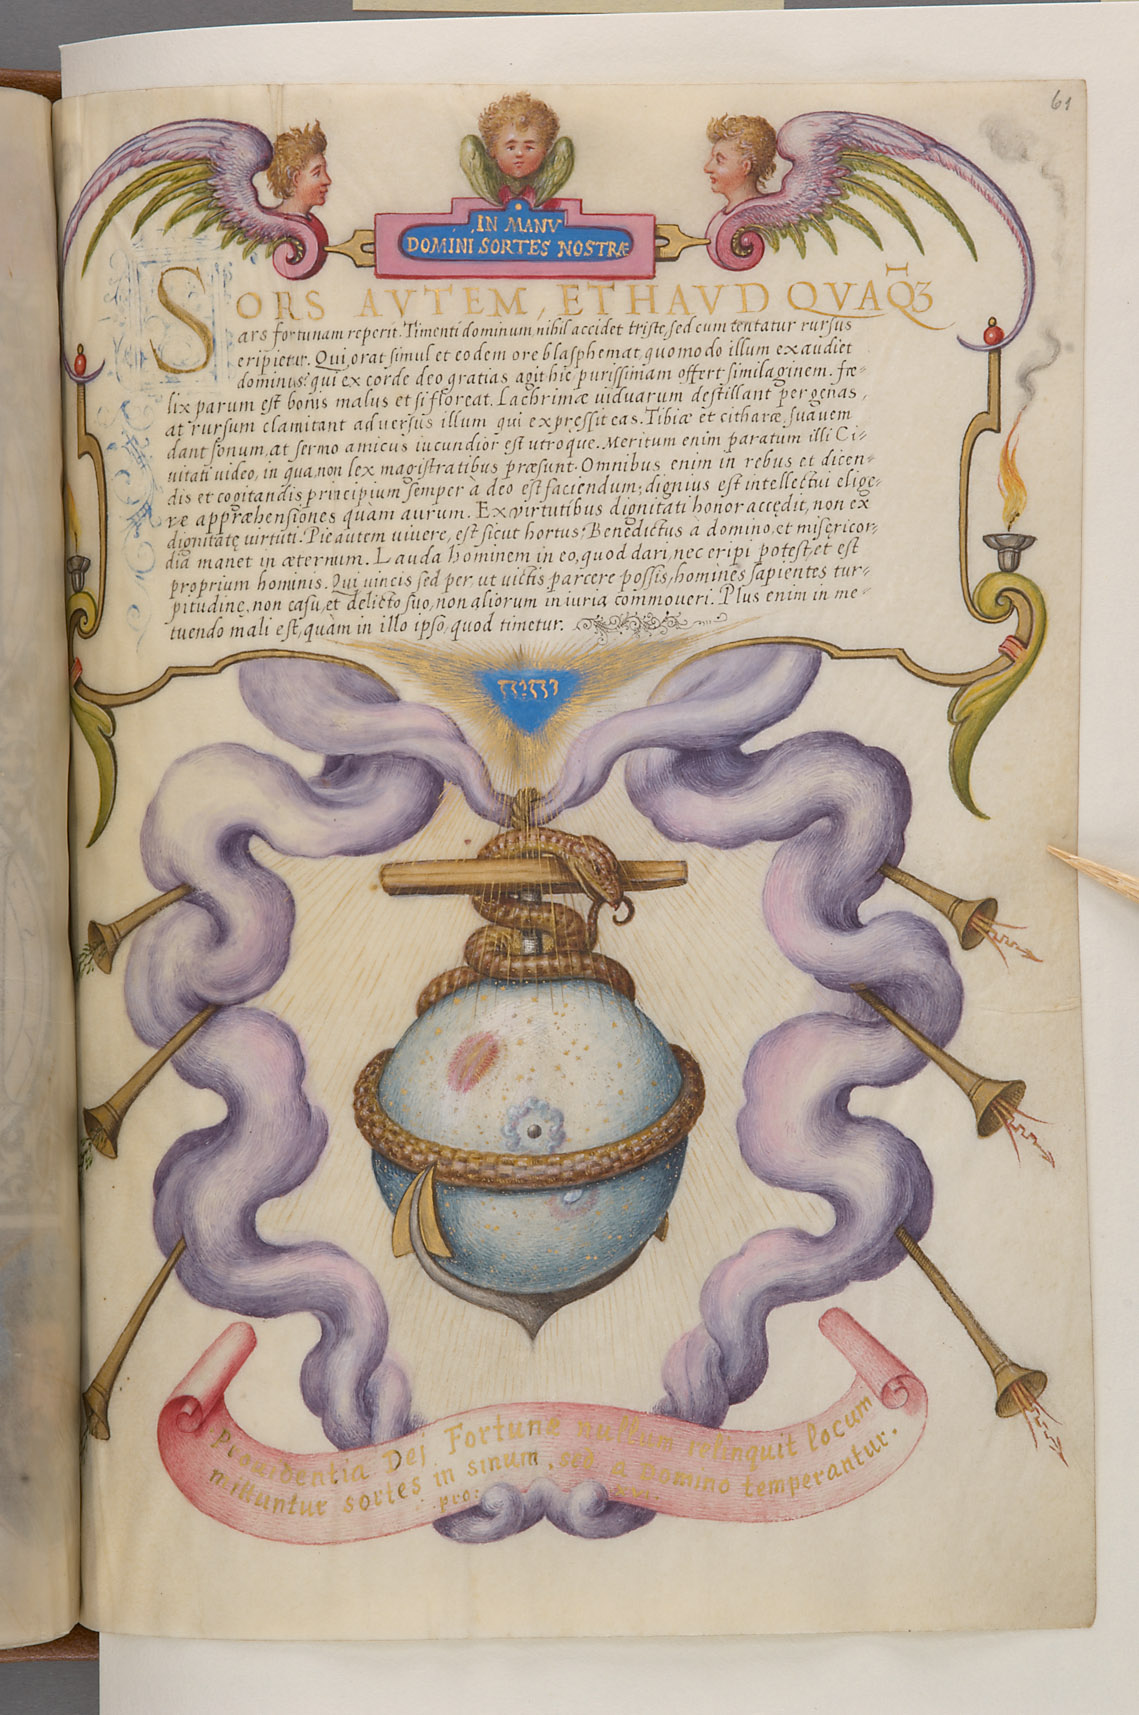 61
IN MANV
DOMINI SORTES NOSTRÆ
SORS AVTEM, ET HAVD QVAQȜ
ars fortunam reperit. Timenti dominum, nihil accidet triste, sed cum tentatur rursus
eripietur. Qui orat simul et eodem ore blasphemat, quomodo illum exaudiet
dominus? qui ex corde deo gratias agit hic purissimam offert similaginem. Fæ-
lix parum est bonis malus et si floreat. Lachrimæ viduarum destillant per genas,
at rursum clamitant adversus illum qui expressit eas. Tibiæ et citharæ, suavem
dant sonum, at sermo amicus iucundior est utroque. Meritum enim paratum illi Ci-
vitati video, in qua, non lex magistratibus præsunt. Omnibus enim in rebus et dicen-
dis et cogitandis principium semper à deo est faciendum; dignius est intellectui elige-
re appræhensiones quàm aurum. Ex virtutibus dignitati honor accędit, non ex
dignitatę virtuti. Pie autem vivere, est sicut hortus; Benedictus à domino, et misęricor-
dia manet in æternum. Lauda hominem in eo, quod dari, nec eripi potest, et est
proprium hominis. Qui vincis sed per, ut victis parcere possis, homines sapientes tur-
pitudinę, non casu, et delicto suo, non aliorum iniuria commoveri. Plus enim in me-
tuendo mali est, quàm in illo ipso, quod timetur.
יהוה
providentia Dei Fortunę nullum relinquit locum
mittuntur sortes in sinum, sed a Domino temperantur.
pro: xvi